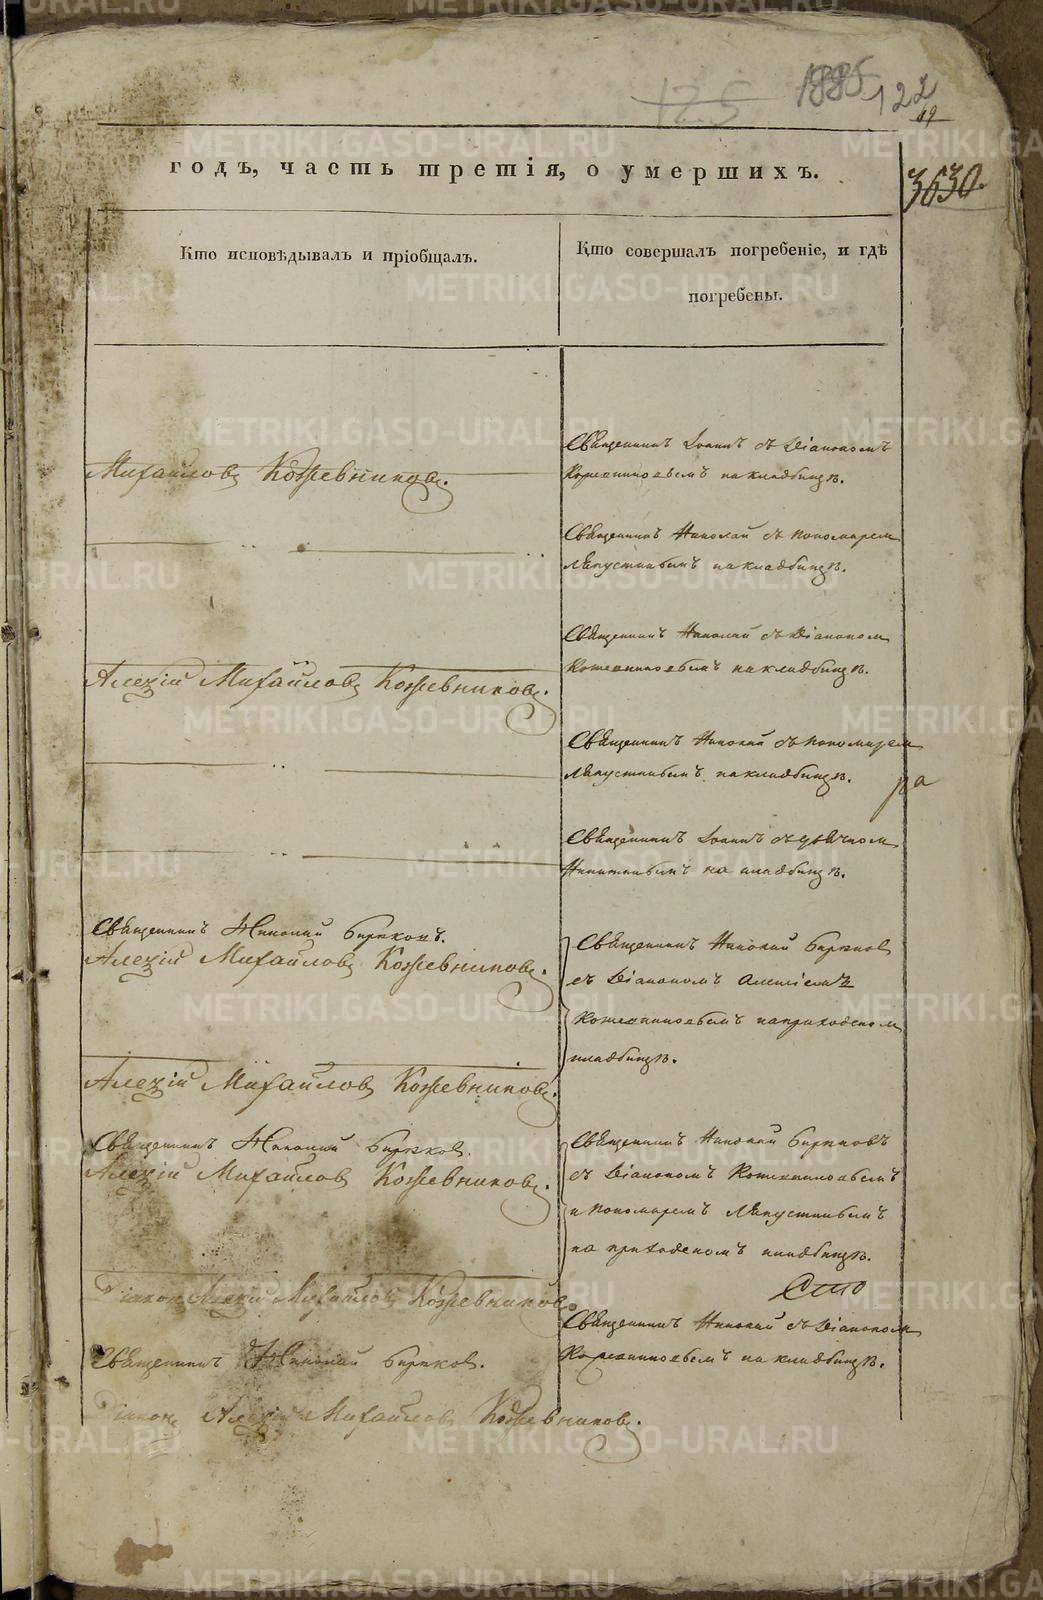 125 1885 122
19
годъ, часть третія, о умершихъ.
3630.
Кто исповѣдывалъ и пріобщалъ.
Кто совершалъ погребеніе, и гдѣ
погребены.
Священникъ Іоаннъ съ Діакономъ
Михайловъ Кожевниковъ.
Кожевниковымъ на кладбищѣ.
Священникъ Николай съ пономарем
на кладбищѣ.
Священникъ Николай съ Діаконом
Кожевниковымъ на кладбищѣ.
Алексій Михайловъ Кожевниковъ.
Священникъ Николай съ пономарем
на кладбищѣ.
ра
Священникъ Іоаннъ съ дьячком
Никитинымъ на кладбищѣ.
Священникъ Николай Бирюковъ.
Алексій Михайловъ Кожевниковъ.
Священникъ Николай Бирюков
съ Діакономъ Алексіемъ
Кожевниковымъ на приходском
кладбищѣ.
Алексій Михайлов Кожевников.
Священникъ Николай Бирюков.
Алексій Михайлов Кожевников.
Священникъ Николай Бирюковъ
съ Діакономъ Кожевниковымъ
и пономаремъ
на приходскомъ кладбищѣ.
Діакон Алексій Михайлов Кожевников.
Священникъ Николай съ Діаконом
Кожевниковымъ на кладбищѣ.
Священникъ Николай Бирюков.
Діаконъ Алексій Михайлов Кожевников.
METRIKI.GASO-URAL.RU